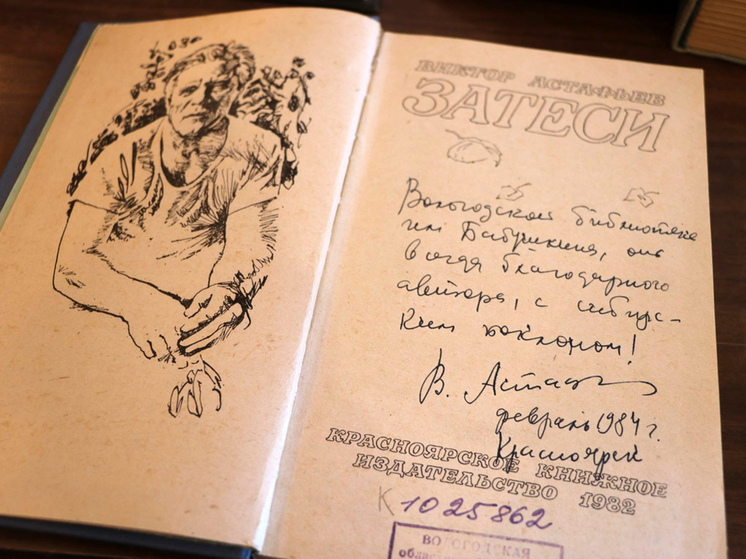 ВИКТОР АСТАФЬЕВ
ЗАТЕСИ
Вологодской библиотеке
им Бабушкина, от
всегда благодарного
автора, с сибирс-
ким поклоном!
В. Астаф
февраль 1984 г.
Красноярск
КРАСНОЯРСКОЕ КНИЖНОЕ
ИЗДАТЕЛЬСТВО 1982
К 1025862
ВОЛОГОДСКАЯ